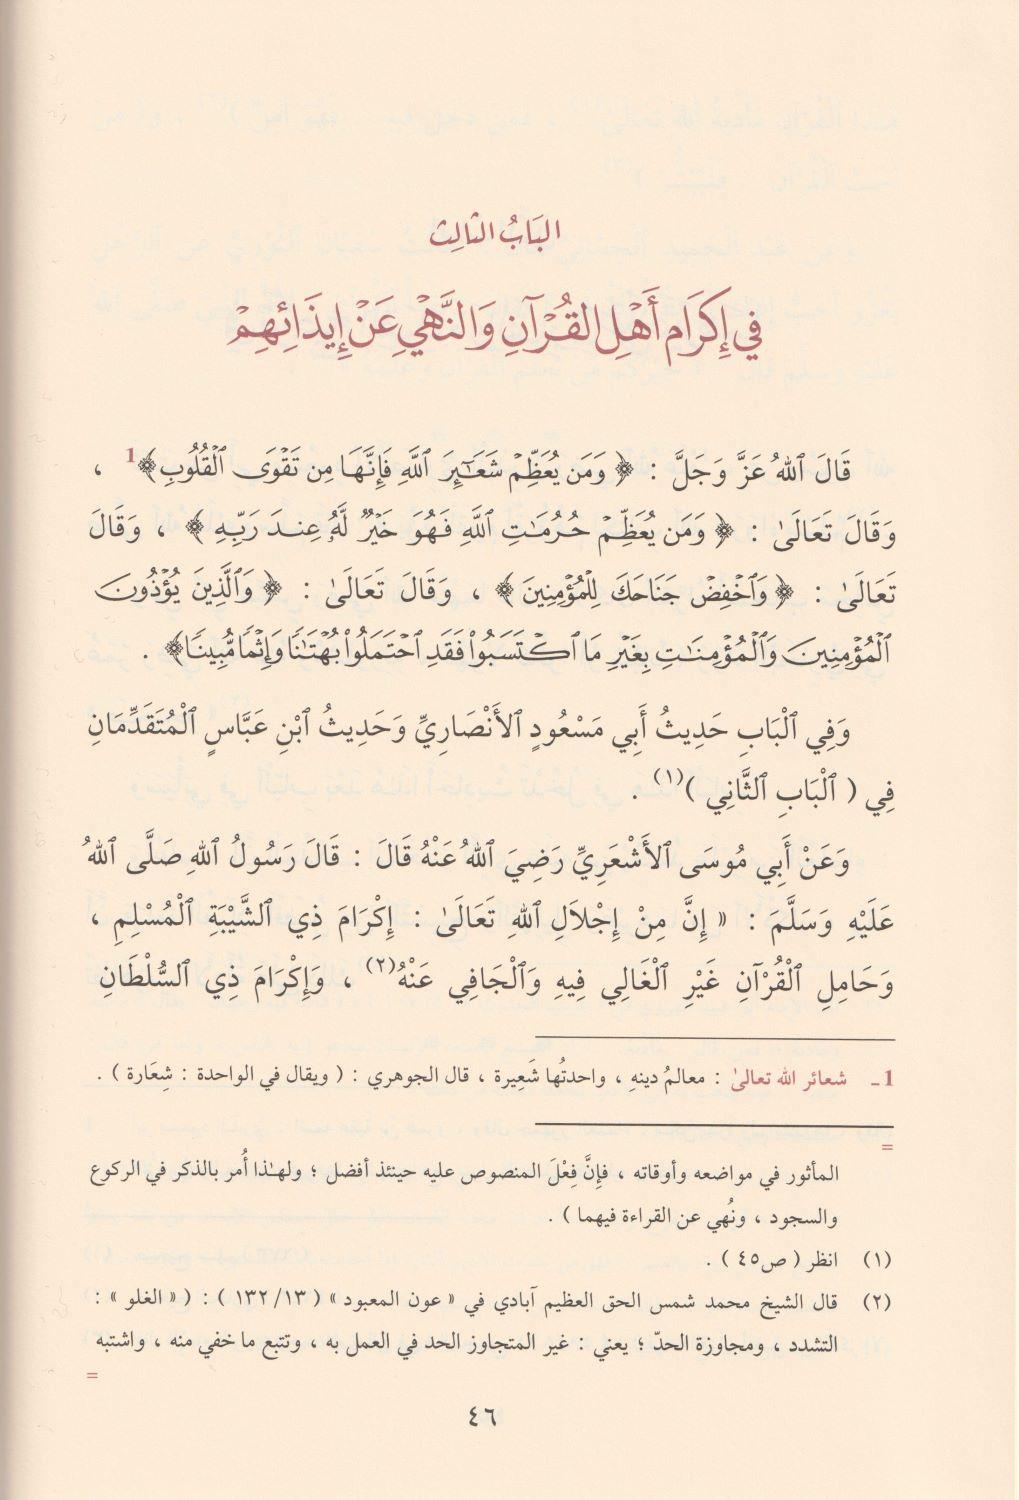 البَابُ الثالِث
في إِكرَام أَهْلِ القُرْآنِ وَالنَّهْيِ عَنْ إِيذَائِهِمْ
قَالَ ٱللهُ عَزَّ وَجَلَّ : ﴿ وَمَن يُعَظِّمْ شَعَـٰٓئِرَ ٱللَّهِ فَإِنَّهَا مِن تَقْوَى ٱلْقُلُوبِ﴾1 ،
وَقَالَ تَعَالَىٰ : ﴿ وَمَن يُعَظِّمْ حُرُمَـٰتِ ٱللَّهِ فَهُوَ خَيْرٌ لَّهُ عِندَ رَبِّهِ ﴾ ، وَقَالَ
تَعَالَىٰ : ﴿ وَٱخْفِضْ جَنَاحَكَ لِلْمُؤْمِنِينَ﴾ ، وَقَالَ تَعَالَىٰ : ﴿ وَٱلَّذِينَ يُؤْذُونَ
ٱلْمُؤْمِنِينَ وَٱلْمُؤْمِنَـٰتِ بِغَيْرِ مَا ٱكْتَسَبُوا۟ فَقَدِ ٱحْتَمَلُوا۟ بُهْتَـٰنًا وَإِثْمًا مُّبِينًا﴾ .
وَفِي ٱلْبَابِ حَدِيثُ أَبِي مَسْعُودٍ ٱلأَنْصَارِيِّ وَحَدِيثُ ٱبْنِ عَبَّاسٍ ٱلْمُتَقَدِّمَانِ
فِي ( ٱلْبَابِ ٱلثَّانِي )(١) .
وَعَنْ أَبِي مُوسَى ٱلأَشْعَرِيِّ رَضِيَ ٱللهُ عَنْهُ قَالَ : قَالَ رَسُولُ ٱللهِ صَلَّى ٱللهُ
عَلَيْهِ وَسَلَّمَ : « إِنَّ مِنْ إِجْلاَلِ ٱللهِ تَعَالَىٰ : إِكْرَامَ ذِي ٱلشَّيْبَةِ ٱلْمُسْلِمِ ،
وَحَامِلِ ٱلْقُرْآنِ غَيْرِ ٱلْغَالِي فِيهِ وَٱلْجَافِي عَنْهُ(٢) ، وَإِكْرَامَ ذِي ٱلسُّلْطَانِ
1ـ شعائر الله تعالىٰ : معالمُ دينهِ ، واحدتُها شَعِيرة ، قال الجوهري : ( ويقال في الواحدة : شِعَارة ) .
=
المأثور في مواضعه وأوقاته ، فإنَّ فِعْلَ المنصوص عليه حينئذ أفضل ؛ ولهـٰذا أُمر بالذكر في الركوع
والسجود ، ونُهي عن القراءة فيهما ) .
(١) انظر ( ص٤٥ ) .
(٢) قال الشيخ محمد شمس الحق العظيم آبادي في « عون المعبود » ( ١٣/ ١٣٢ ) : ( « الغلو » :
التشدد ، ومجاوزة الحدّ ؛ يعني : غير المتجاوز الحد في العمل به ، وتتبع ما خفي منه ، واشتبه
=
٤٦